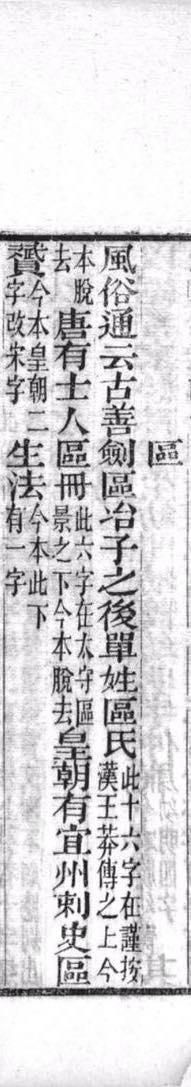 區
風俗通云古善劍區冶子之後單姓區氏此十六字在謹按漢王莽傳之上今
本脫去唐有士人區冊此六字在太守區景之下今本脫去皇朝有宜州刺史區
贇今本皇朝二字改宋字生法今本此下有一字